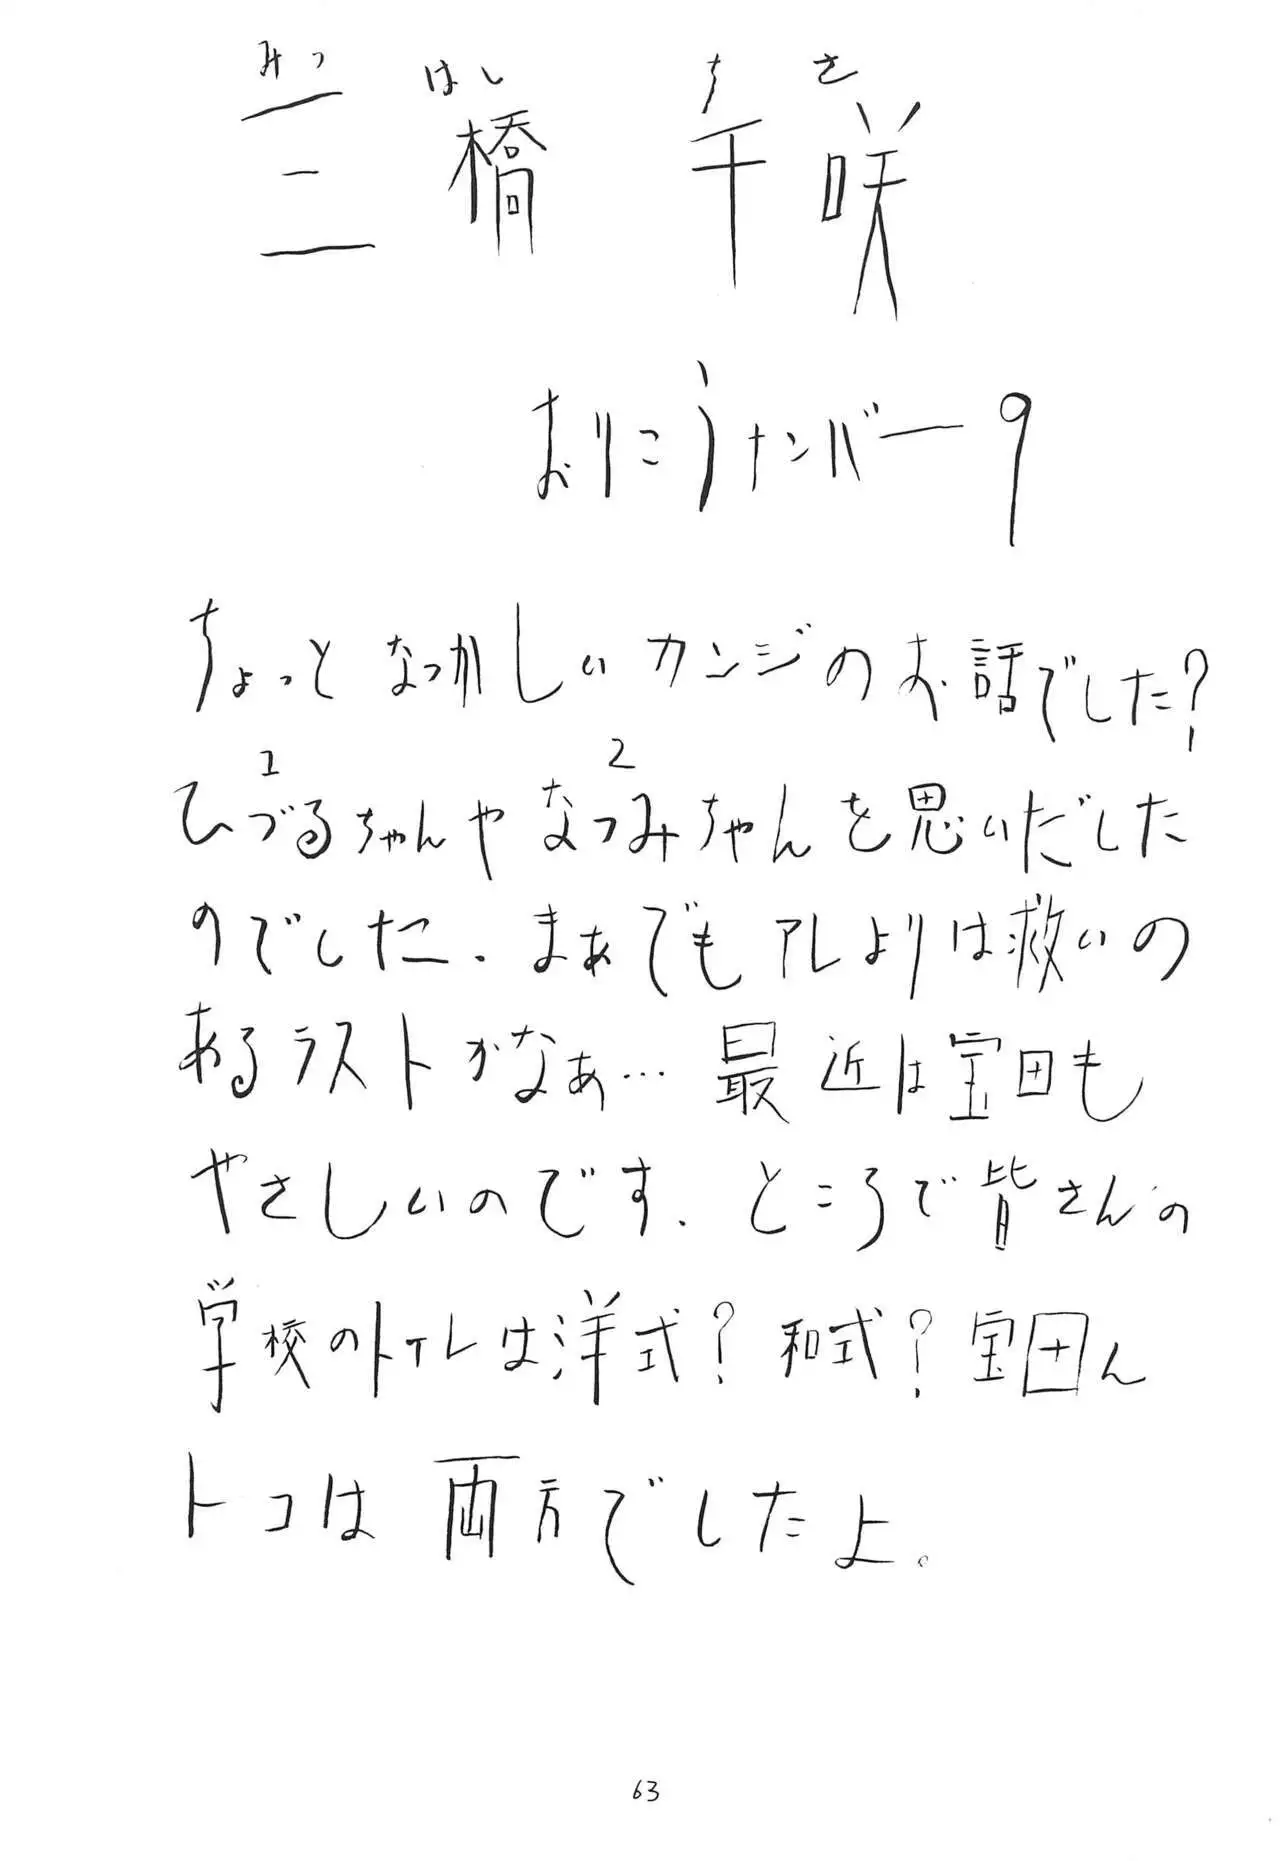 みつ はし ち さ
三橋 千咲
おりこうナンバー9
ちょっとなつかしいカンジのお話でした?
1 2
ひづるちゃんやなつみちゃんを思いだした
のでした。まぁでもアレよりは救いの
あるラストかなぁ… 最近は宝田も
やさしいのです。ところで皆さんの
学校のトイレは洋式?和式?宝田ん
トコは両方でしたよ。
63